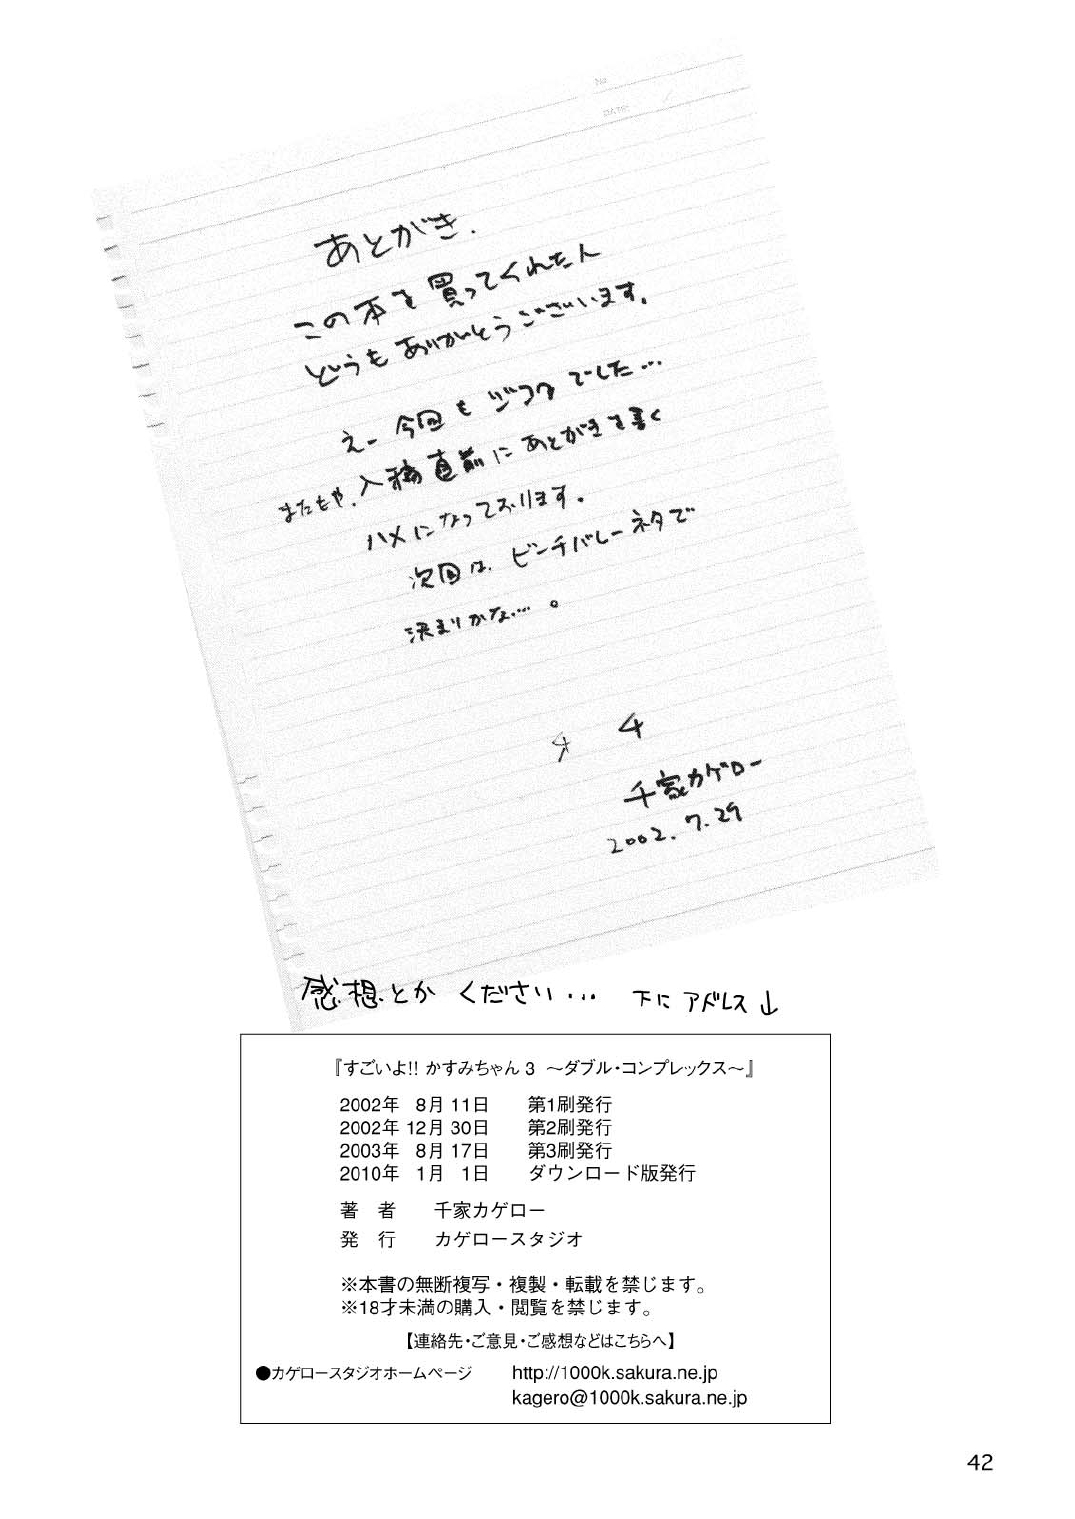 No.
DATE
あとがき.
この本を買ってくれた人
どうもありがとうございます.
えー 今回も でした…
またもや、入稿直前にあとがきを書く
ハメになっております.
次回は、ビーチバレーネタで
決まりかな…。
千家カゲロー
2002.7.29
感想とか ください… 下に アドレス↓
『すごいよ!! かすみちゃん 3 ～ダブル・コンプレックス～』
2002年 8月 11日 第1刷発行
2002年 12月 30日 第2刷発行
2003年 8月 17日 第3刷発行
2010年 1月 1日 ダウンロード版発行
著 者 千家カゲロー
発 行 カゲロースタジオ
※本書の無断複写・複製・転載を禁じます。
※18才未満の購入・閲覧を禁じます。
【連絡先・ご意見・ご感想などはこちらへ】
●カゲロースタジオホームページ http://1000k.sakura.ne.jp
kagero@1000k.sakura.ne.jp
42